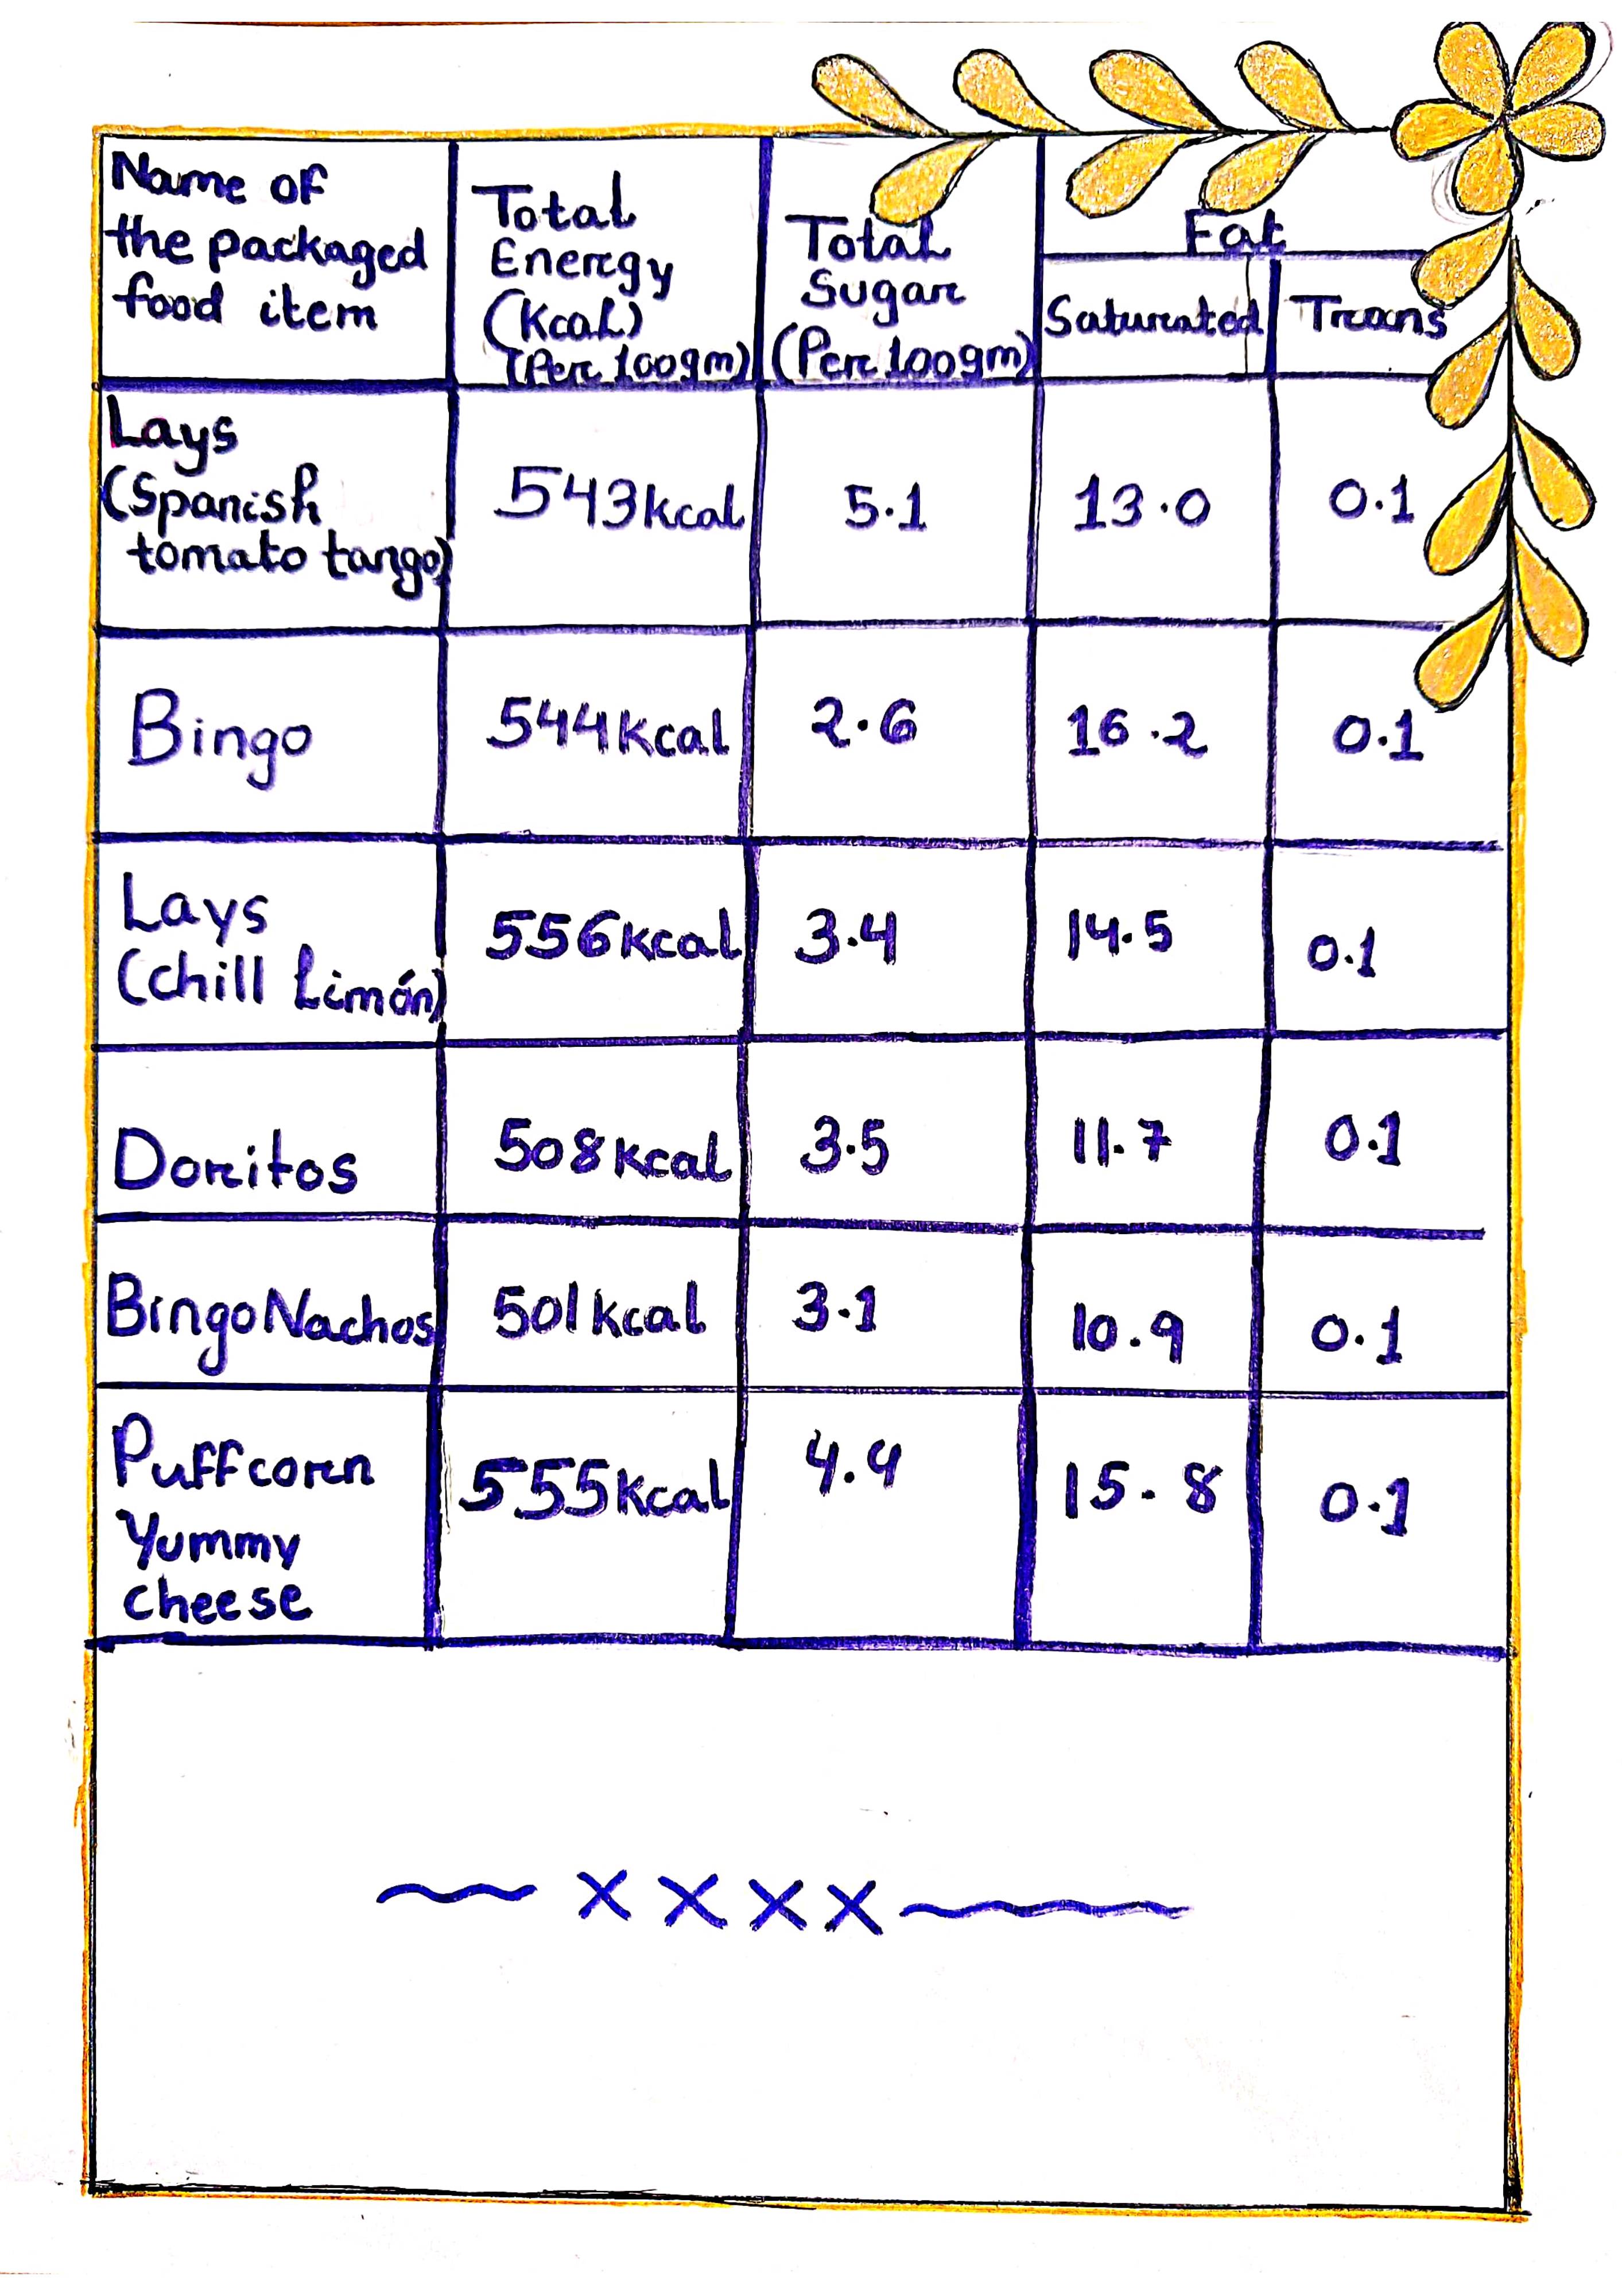 Name of
the packaged
food item
Total
Energy
(Kcal)
(Per 100gm)
Total
Sugar
(Per 100gm)
Fat
Saturated
Trans
Lays
(Spanish
tomato tango)
543kcal
5.1
13.0
0.1
Bingo
544kcal
2.6
16.2
0.1
Lays
(chill Limón)
556kcal
3.4
14.5
0.1
Doritos
508kcal
3.5
11.7
0.1
Bingo Nachos
501kcal
3.1
10.9
0.1
Puffcorn
Yummy
cheese
555kcal
4.4
15.8
0.1
x x x x